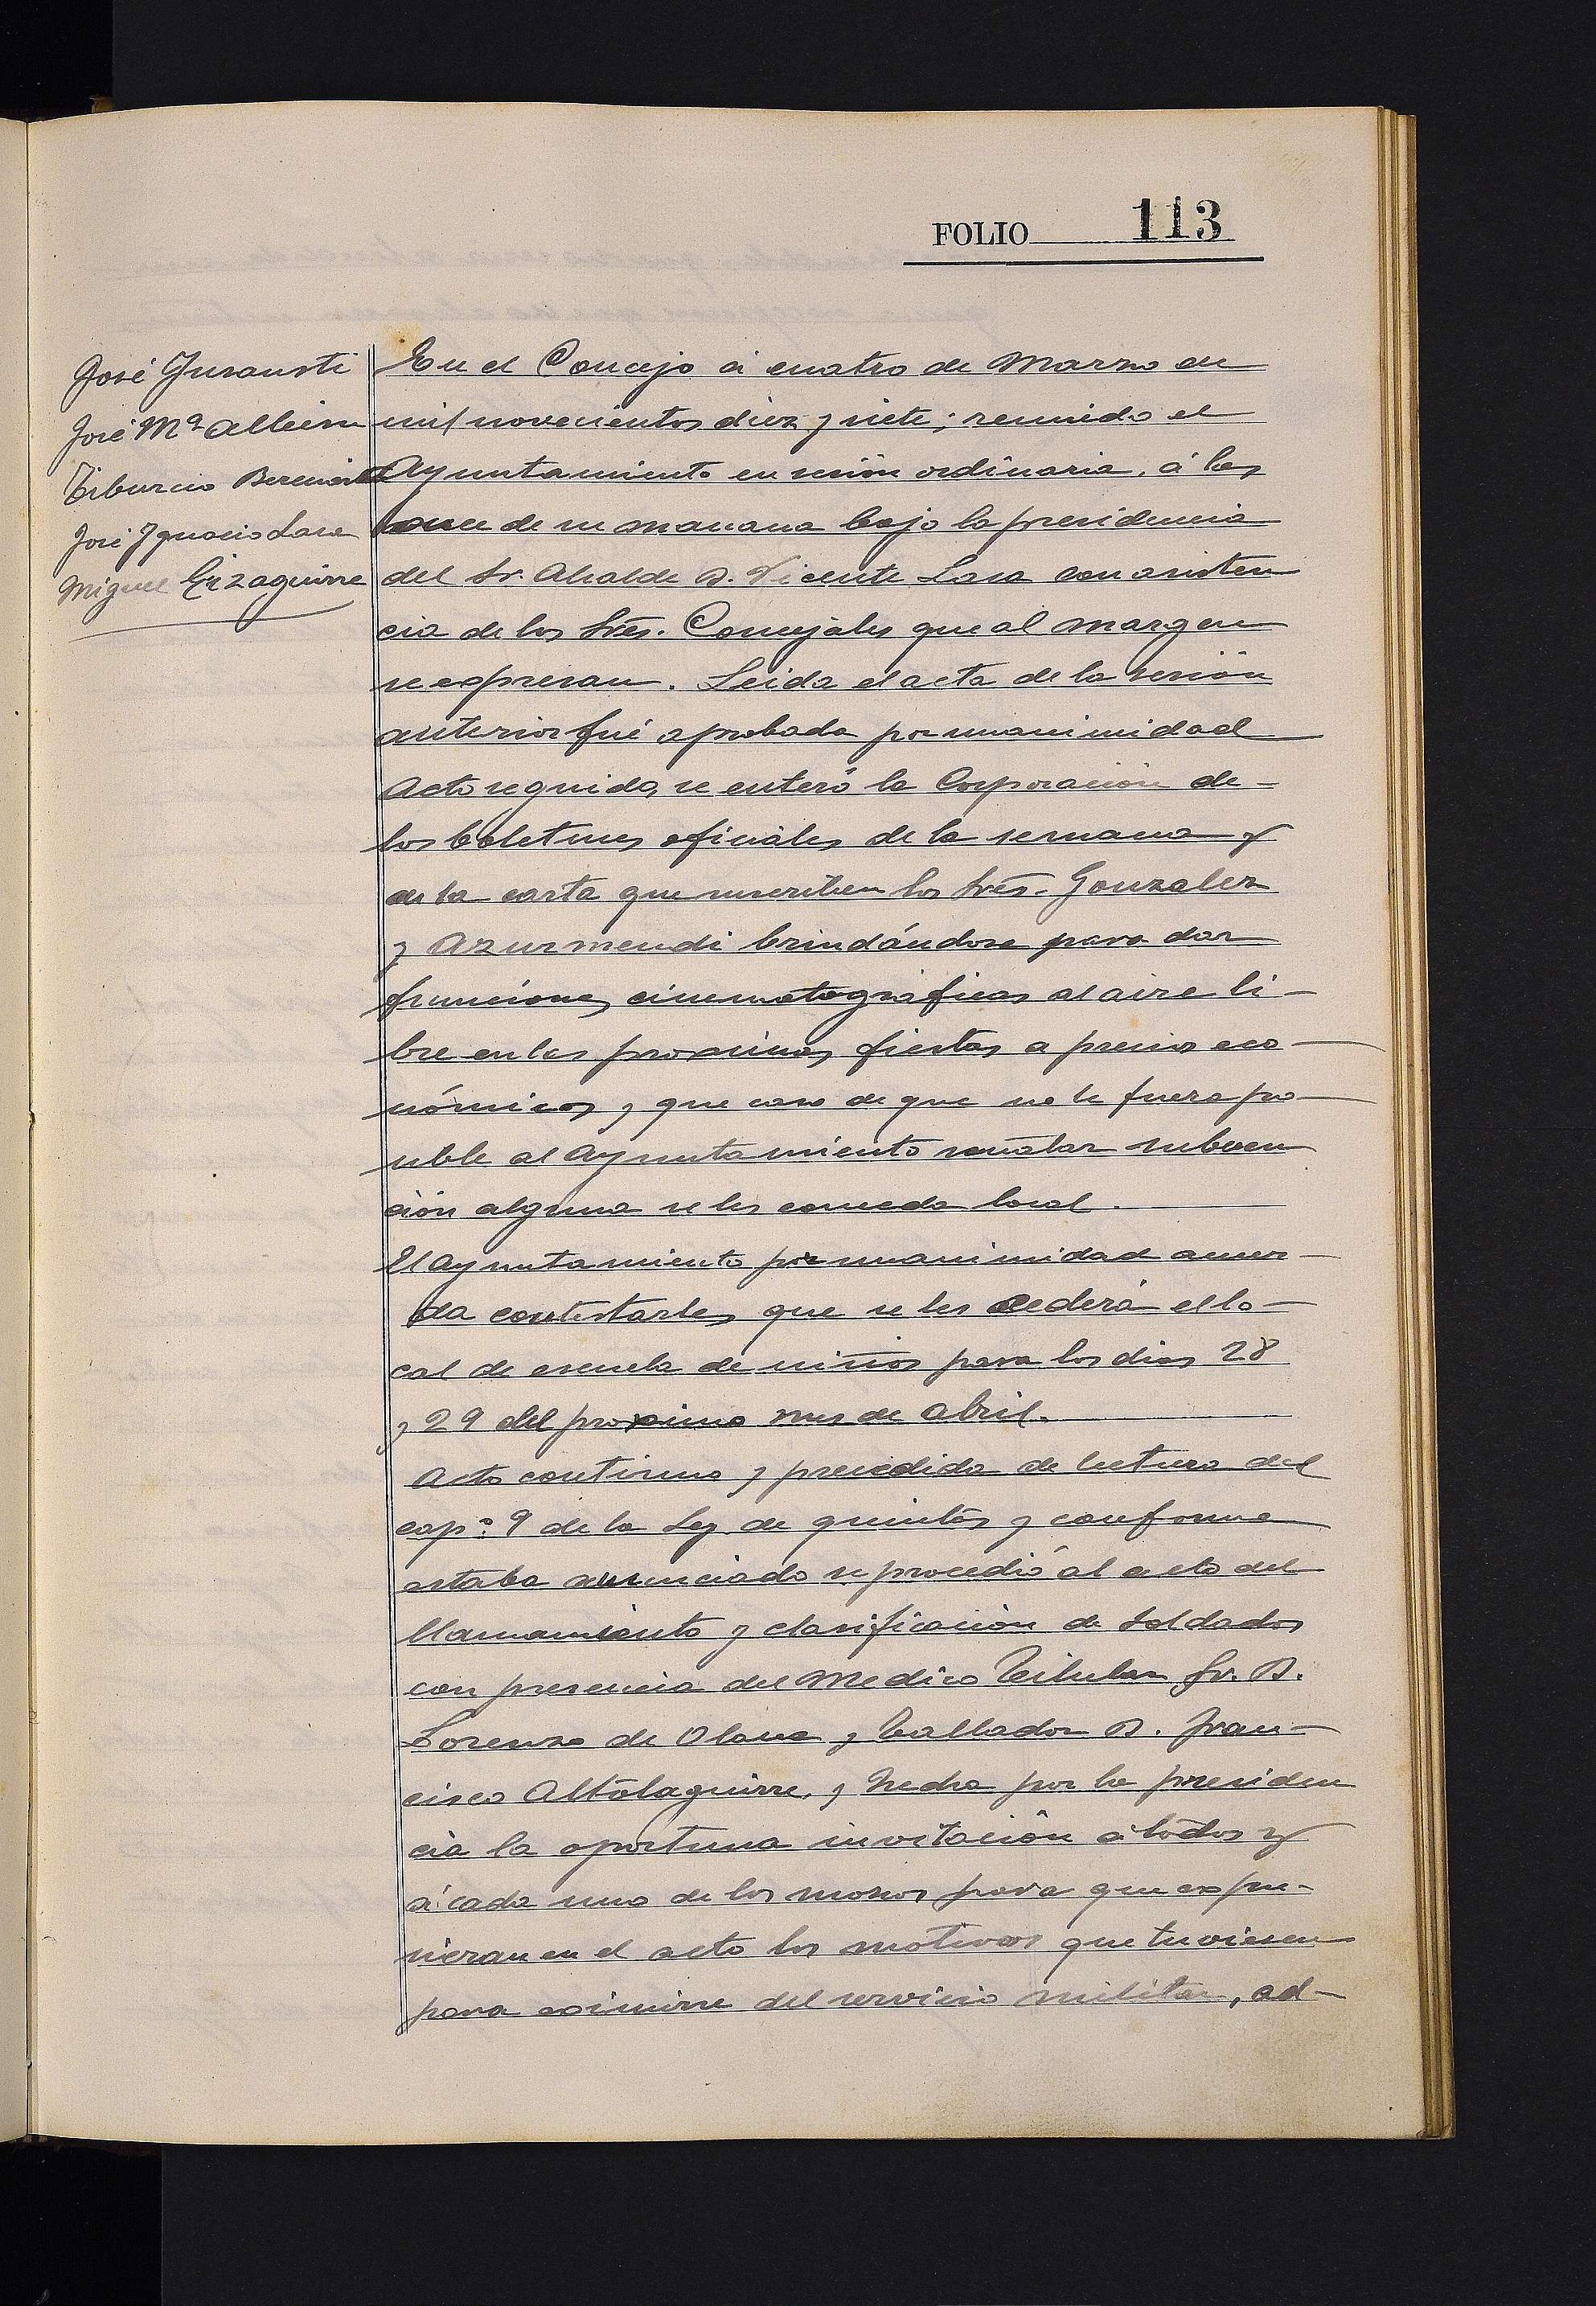 FOLIO 113
José Insausti
José Mª Albisu
Tiburcio
José Ignacio Lasa
Miguel Eizaguirre
En el Concejo á cuatro de Marzo de
mil novecientos diez y siete; reunido el
Ayuntamiento en sesión ordinaria, á las
once de su mañana bajo la presidencia
del Sr. Alcalde D. Vicente Lasa con asisten
cia de los Sres. Concejales que al margen
se expresan. Leida el acta de la sesión
anterior fué aprobada por unanimidad
Acto seguido, se enteró la Corporación de-
los boletines oficiales de la semana y
de la carta que suscriben los Sres. Gonzalez
y Azurmendi brindándose para dar
funciones cinematográficas al aire li-
bre en las proximas fiestas a precios eco-
nómicos, y que caso de que no le fuera po-
sible al Ayuntamiento señalar subven
ción alguna se les conceda local.
El Ayuntamiento por unanimidad acuer-
da contestarles que se les cederá el lo-
cal de escuela de niños para los dias 28
y 29 del proximo mes de Abril.
Acto continuo y precedida de lectura del
cap.º 9 de la Ley de quintas y conforme
estaba anunciado se procedió al acto del
llamamiento y clasificación de soldados
con presencia del Medico Titular Sr. D.
Lorenzo de Olano y Tallador D. Fran-
cisco Altolaguirre, y hecha por la presiden
cia la oportuna invitación á todos y
á cada uno de los mozos para que expu-
sieran en el acto los motivos que tuviesen
para eximirse del servicio militar, ad-